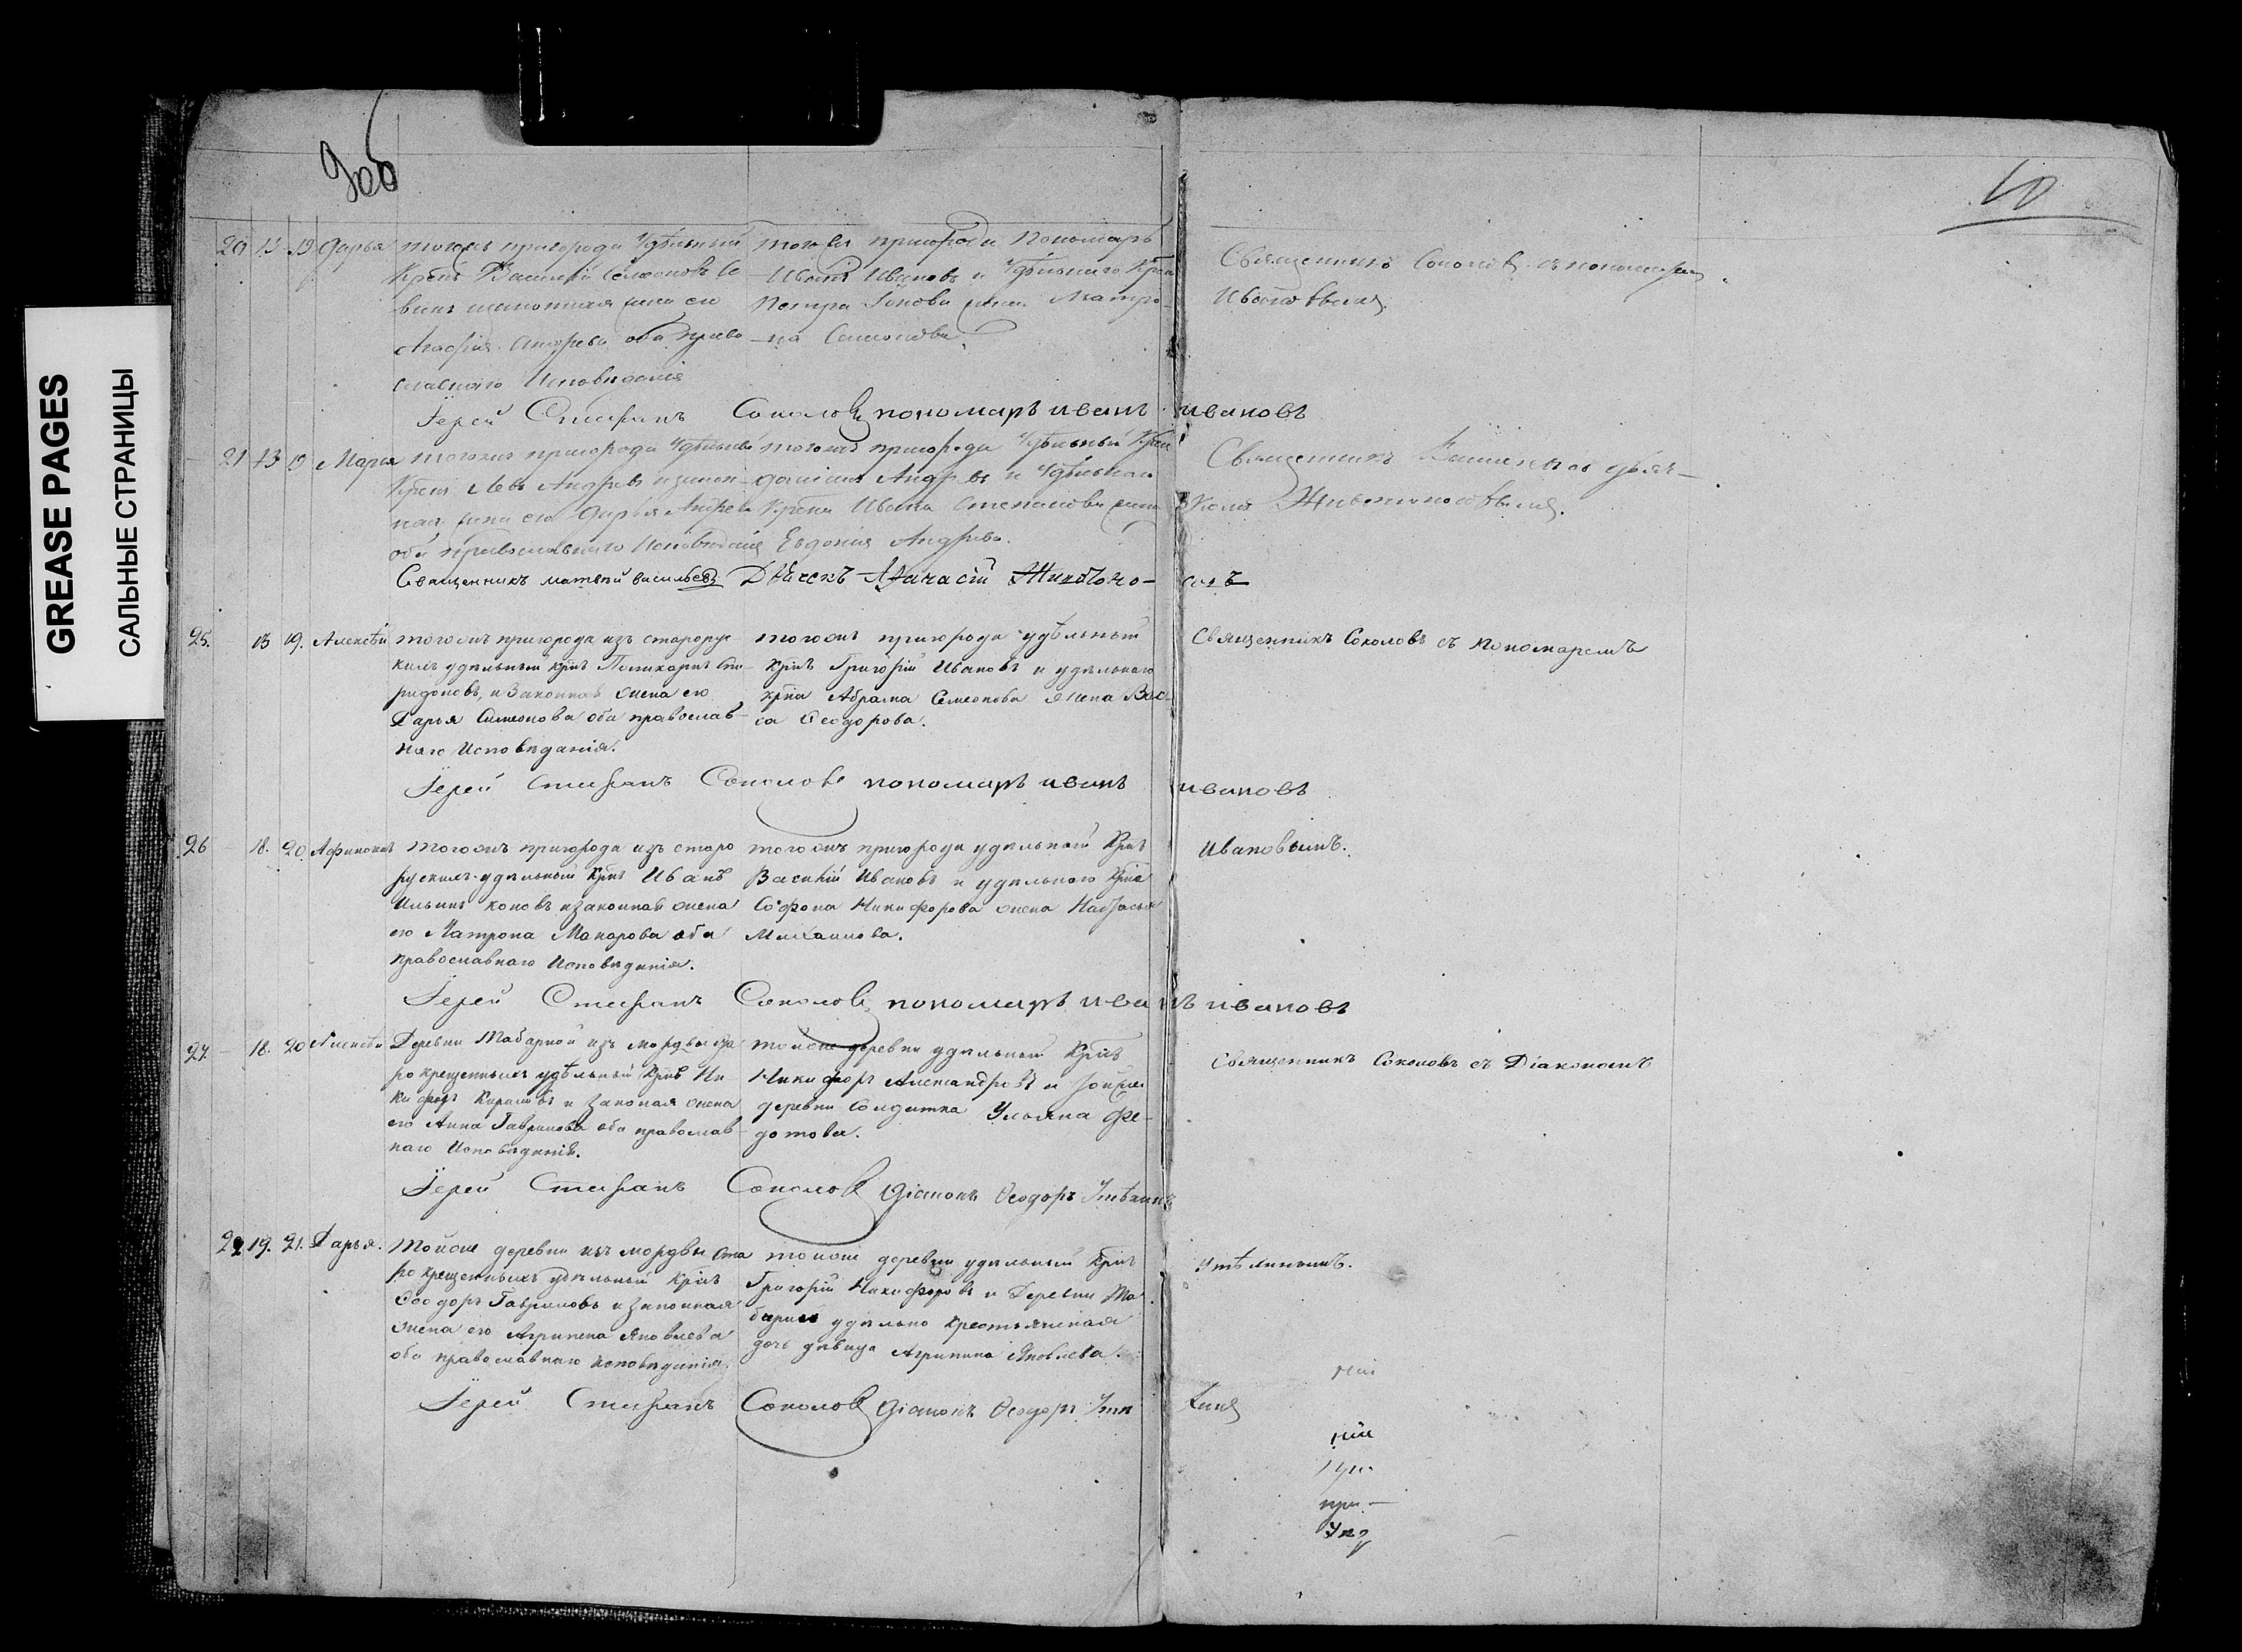 GREASE PAGES
САЛЬНЫЕ СТРАНИЦЫ
9об
10
20 13 19 Дарья тогожъ пригорода Удѣльный
Крнъ Василій Семеоновъ Са
винъ и законная жена его
Агафія Андрева оба право
славнаго Исповѣданія
тогожъ пригорода Пономарь
Иванъ Ивановъ и Удѣльнаго Крна
Петра Іонова жена Матро-
-на Семенова.
Священникъ Соколовъ съ пономаремъ
Ивановымъ.
Іерей Стефанъ Соколовъ пономарь иванъ ивановъ
21 13 19 Марья тогожъ пригорода Удѣльный
Крнъ Левъ Андревъ и закон-
ная жена его Дарья Андрева
оба православнаго Исповѣданія
тогожъ пригорода Удѣльный Крнъ
Андревъ и Удѣльнаго
Крна Ивана Степанова жена
Евдокія Андрева.
Священникъ
Животоносовымъ.
Священникъ матвѣй васильевъ Дьячекъ Афанасій Животоно-совъ
25. 13 19. Алексѣй тогожъ пригорода изъ старорус
кихъ удѣльный крнъ Поликарпъ Спи-
ридоновъ и Законная жена его
Дарья Симеонова оба православ-
наго Исповѣданія.
тогожъ пригорода удѣльный
Крнъ Григорій Ивановъ и удѣльнаго
крна Абрама Семеонова жена Вас-
са Ѳеодорова.
Священникъ Соколовъ съ Пономаремъ
Іерей Стефанъ Соколовъ пономарь иванъ ивановъ
26 18. 20. Афиногенъ тогожъ пригорода изъ старо
рускихъ удѣльный Крнъ Иванъ
Ильинъ Коновъ и законная жена
его Матрона Макарова оба
православнаго Исповѣданія.
тогожъ пригорода удѣльный Крнъ
Василій Ивановъ и удѣльнаго Крна
Софона Никифорова жена Настасья
Михаилова.
Ивановымъ.
Іерей Стефанъ Соколовъ пономарь иванъ ивановъ
27. 18. 20 Алексѣй Деревни Мабарной изъ мордвы ста
рокрещенныхъ удѣльный Крнъ Ни-
кифоръ Кириловъ и Законая жена
его Анна Гаврилова оба православ-
наго Исповѣданія.
тойже деревни удѣльный Крнъ
Никифоръ Александровъ и тойже
деревни Солдатка Ульяна Фе-
дотова.
Священникъ Соколовъ съ Діакономъ
Іерей Стефанъ Соколовъ Діаконъ Ѳеодоръ Утѣхинъ
22 19. 21. Дарья. Тойже деревни изъ мордвы ста
рокрещенныхъ удѣльный Крнъ
Ѳеодоръ Гавриловъ и Законная
жена его Агрипена Яковлева
оба православнаго исповѣданія.
тойже деревни удѣльный Крнъ
Григорій Никифоровъ и Деревни Ма
барной удѣльно крестьянская
дочь дѣвица Агрипина Яковлева.
Утѣхинымъ.
Іерей Стефанъ Соколовъ Діаконъ Ѳеодоръ Утѣхинъ